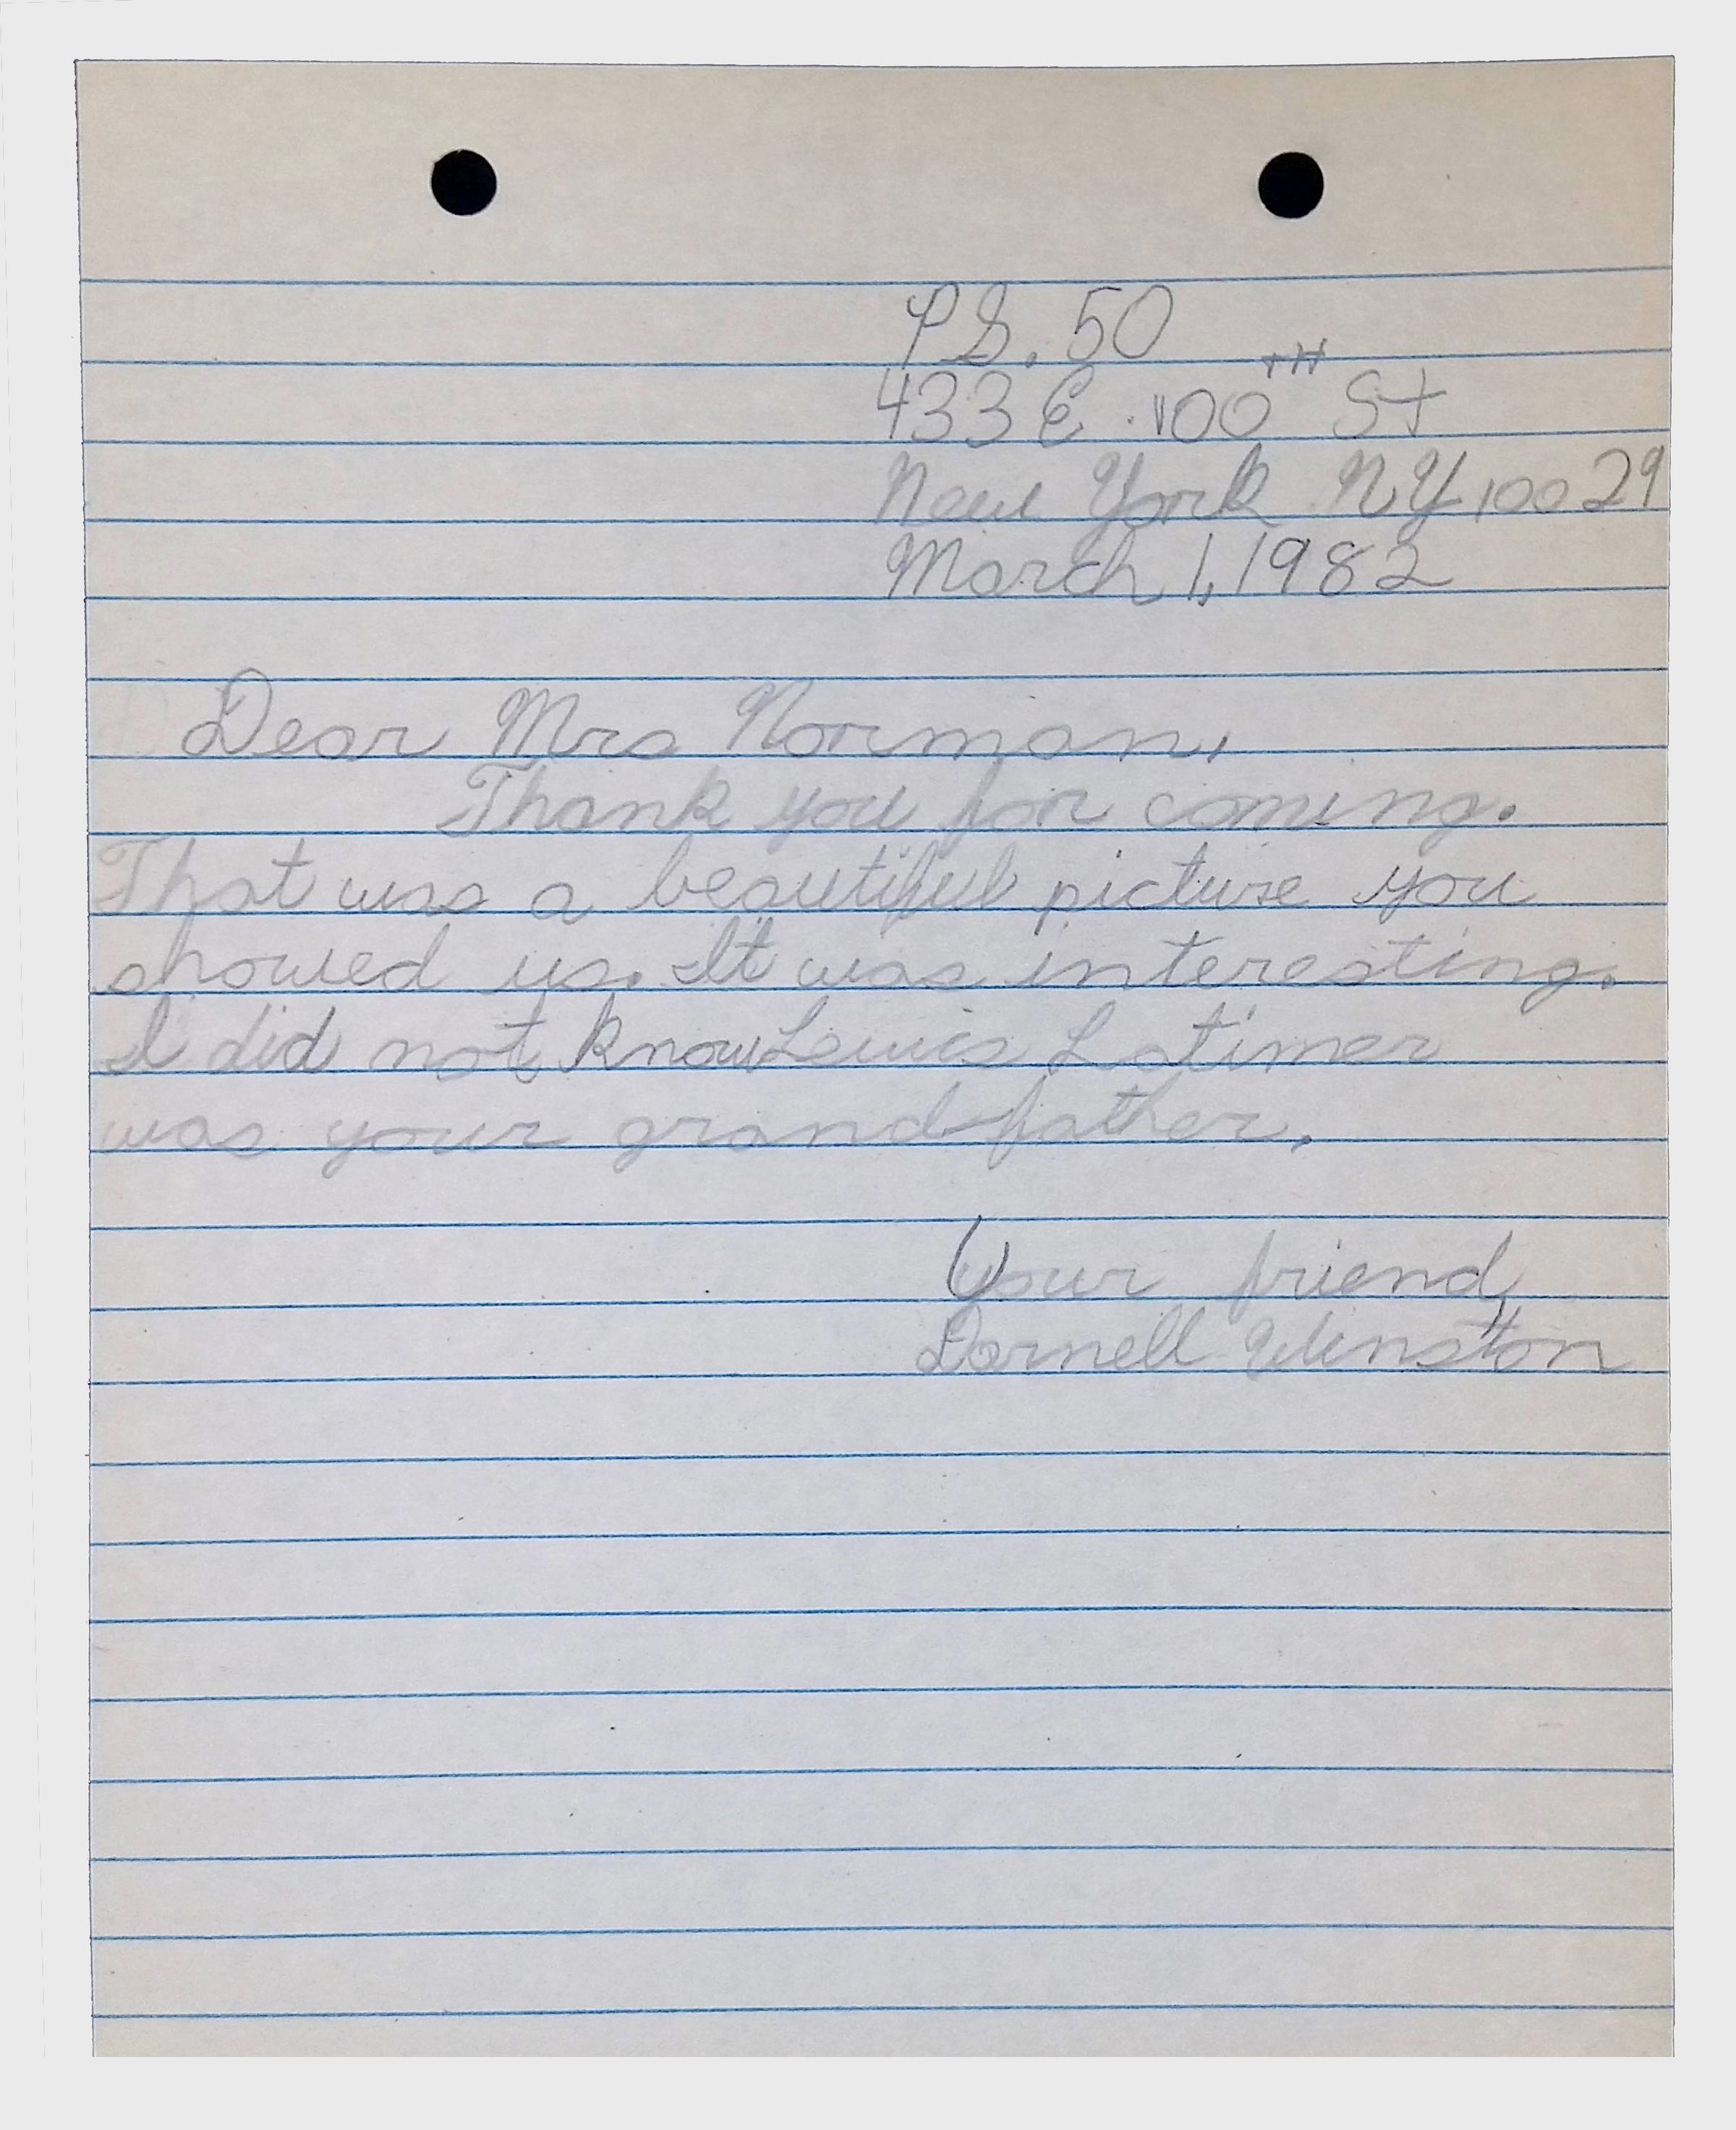 PS. 50
433 E. 100TH St
New York NY 10029
March 1, 1982
Dear Mrs Norman,
Thank you for coming.
That was a beautiful picture you
showed us. It was interesting.
I did not know Lewis Latimer
was your grand-father.
Your friend,
Darnell Winston